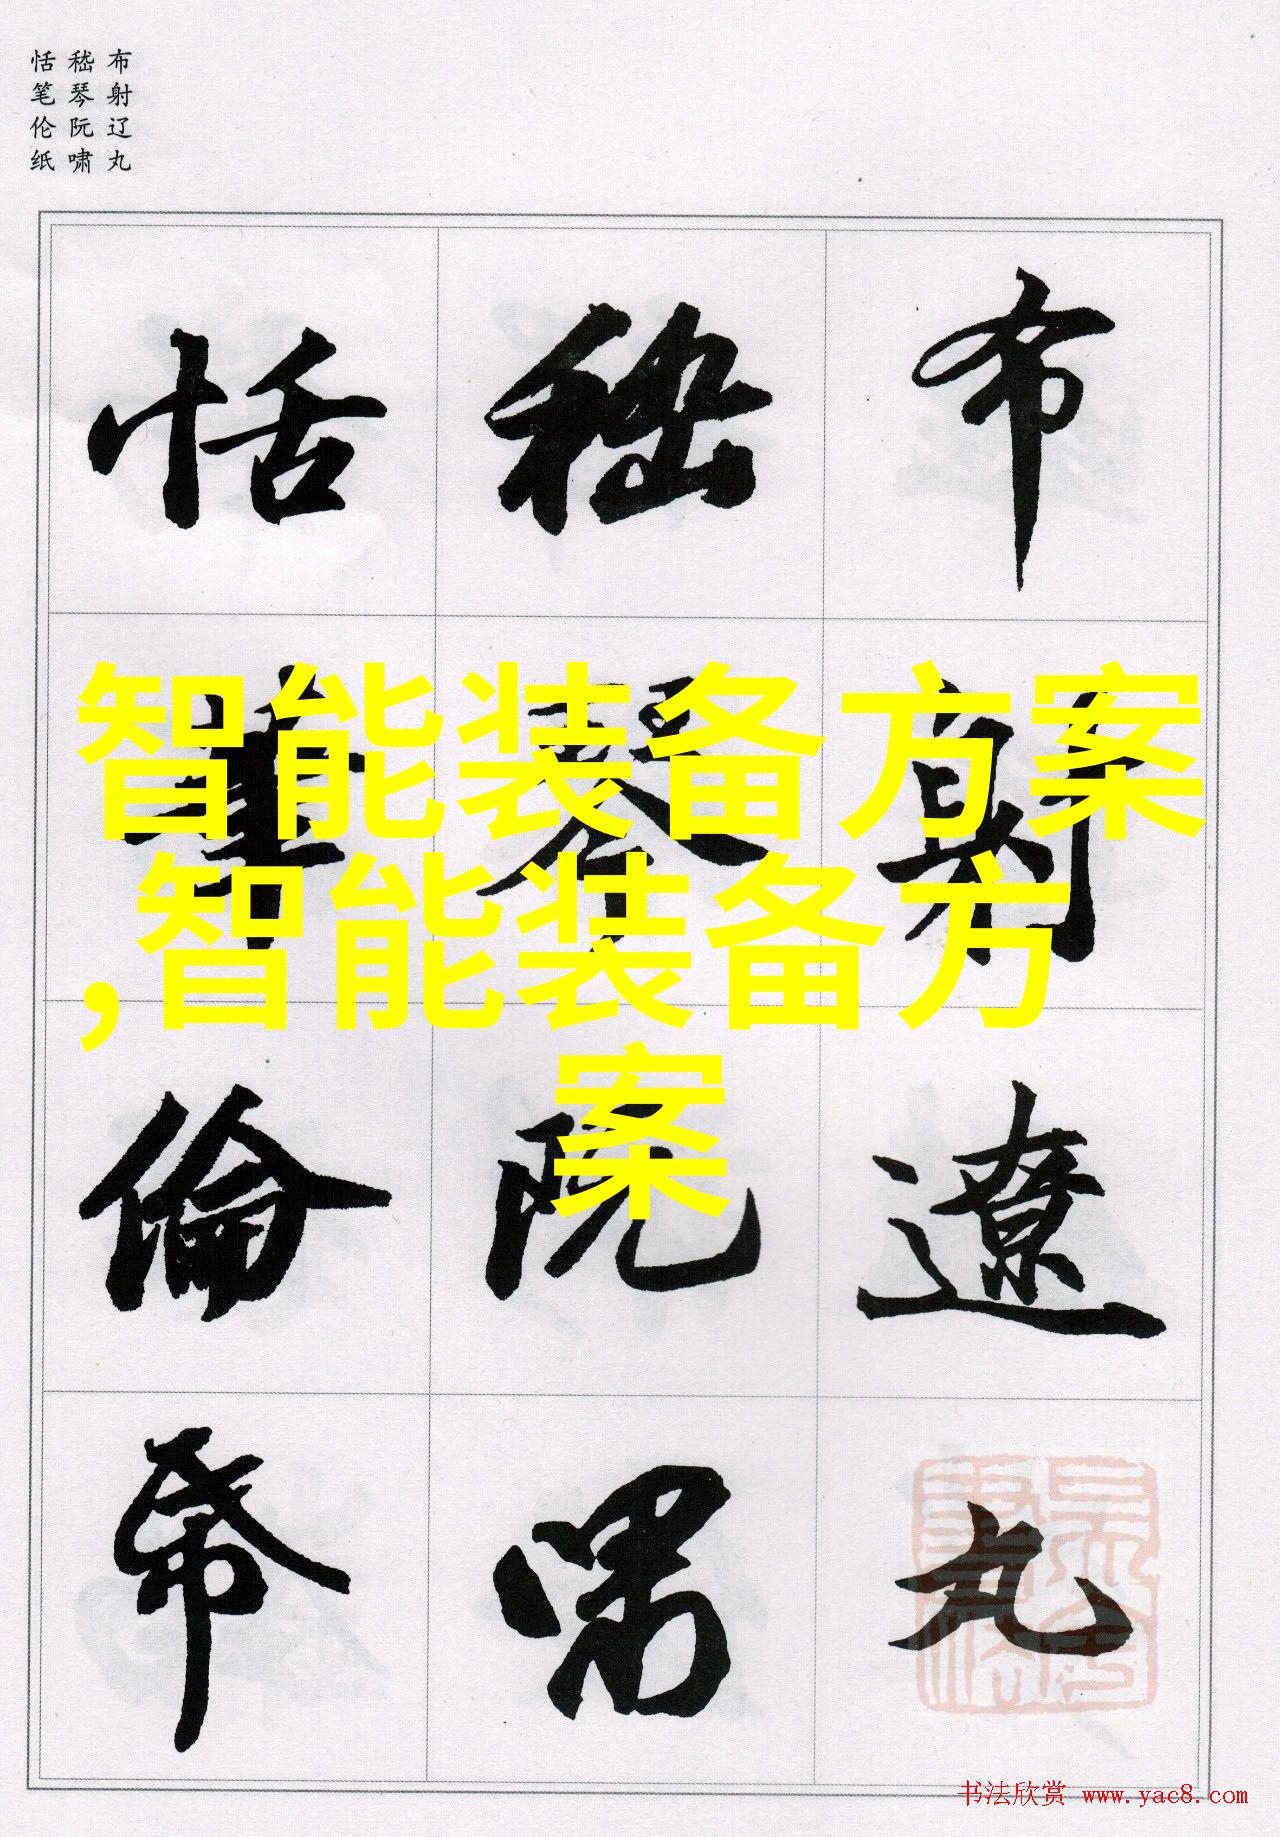 布射辽丸
嵇琴阮啸
恬笔伦纸
布射遼丸
嵇琴阮嘯
恬筆倫帋
智能装备方案
,智能装备方
案
书法欣赏 www.yac8.com